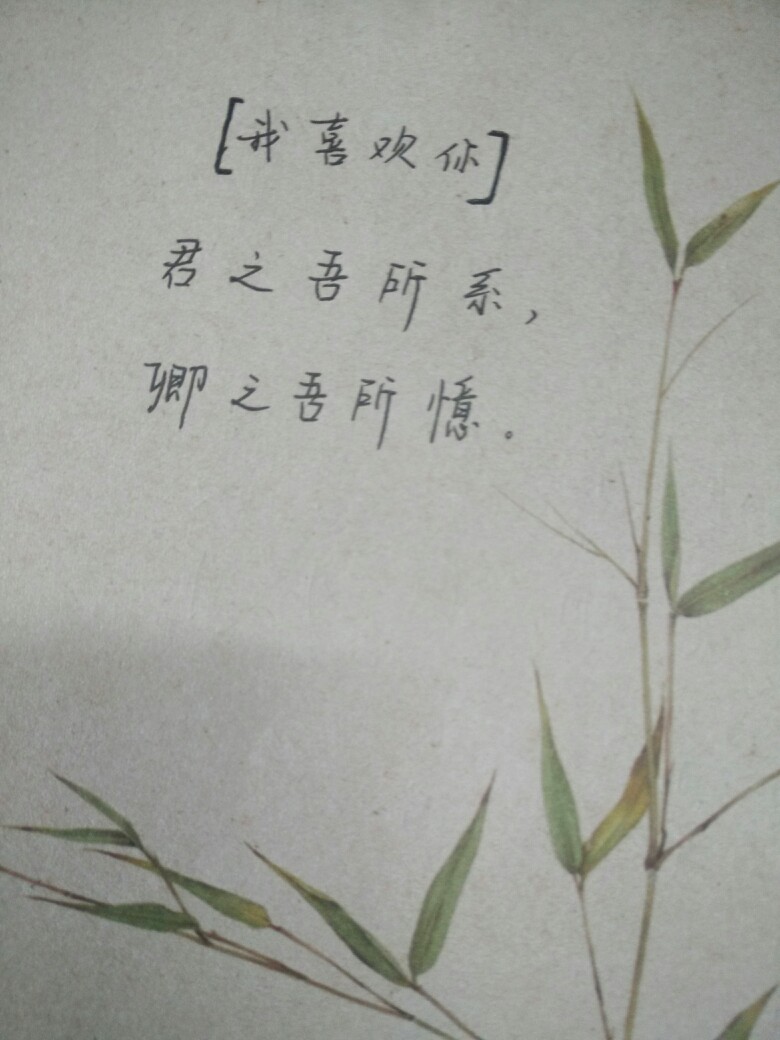 [我喜欢你]
君之吾所系，
卿之吾所憶。